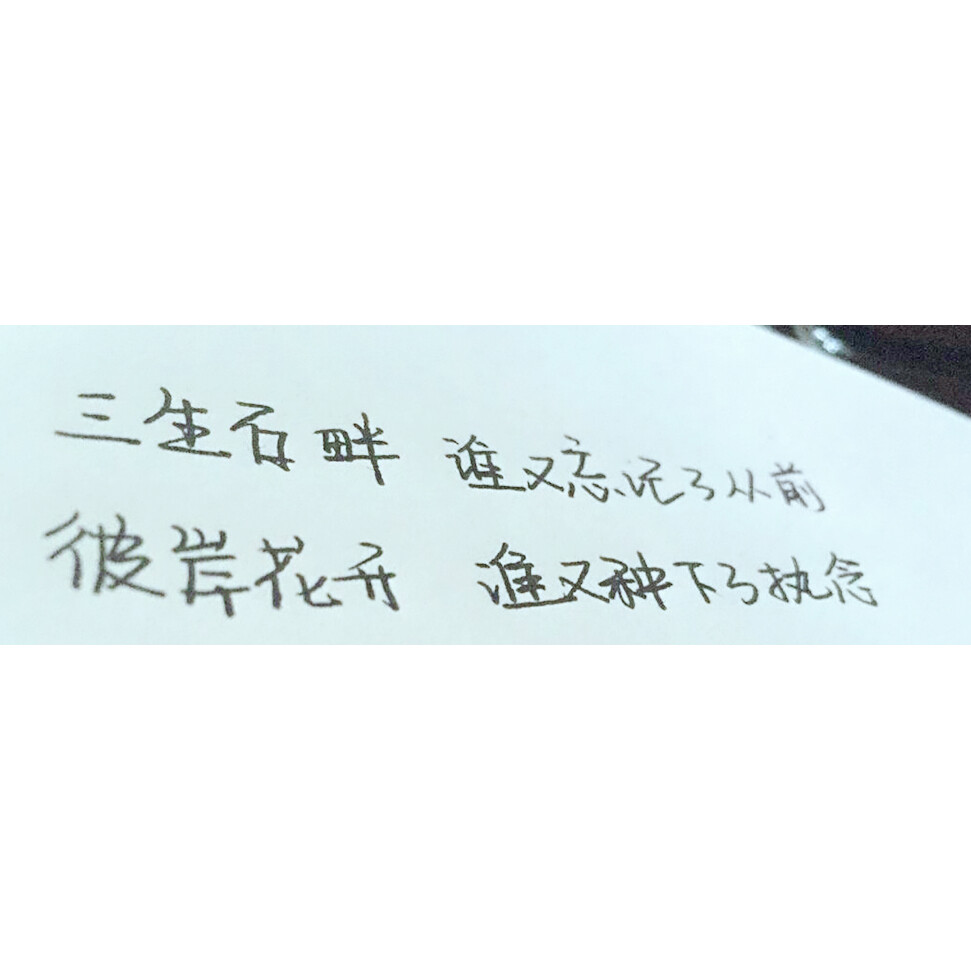 三生石畔 谁又忘记了从前
彼岸花开 谁又种下了执念